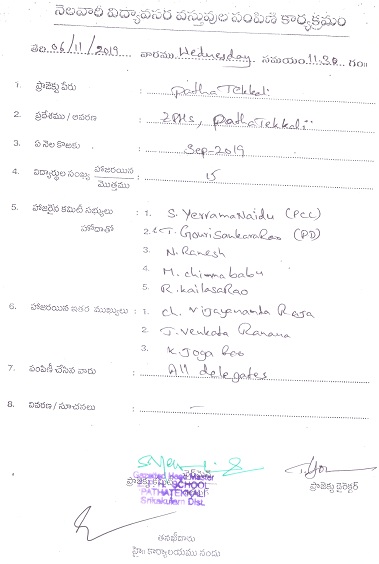 నెలవారీ విద్యావసర వస్తువుల పంపిణి కార్యక్రమం
తేది. 06/11/2019 వారము Wednesday సమయం 11.30 గం॥
1. ప్రాజెక్టు పేరు : Patha Tekkali
2. ప్రదేశము / ఆవరణ : ZPHS, Patha Tekkali
3. ఏ నెల కొఱకు : Sep-2019
4. విద్యార్థుల సంఖ్య హాజరయిన / మొత్తము : 15
5. హాజరైన కమిటీ సభ్యులు : 1. S. Yerrama Naidu (PCC)
హోదాతో 2. T. Gouri Sankara Rao (PD)
3. N. Ramesh
4. M. chinnababu
5. R. kailasa Rao
6. హాజరయిన ఇతర ముఖ్యులు : 1. ch. Vijayananda Raja
2. T. Venkata Ramana
3. K. Joga Rao
7. పంపిణీ చేసిన వారు : All delegates
8. వివరణ / సూచనలు : –
ప్రాజెక్టు
ప్రాజెక్టు డైరెక్టర్
Gazetted Head Master
SCHOOL
PATHATEKKALI
Srikakulam Dist.
తనఖీదారు
హై॥ కార్యాలయము నందు